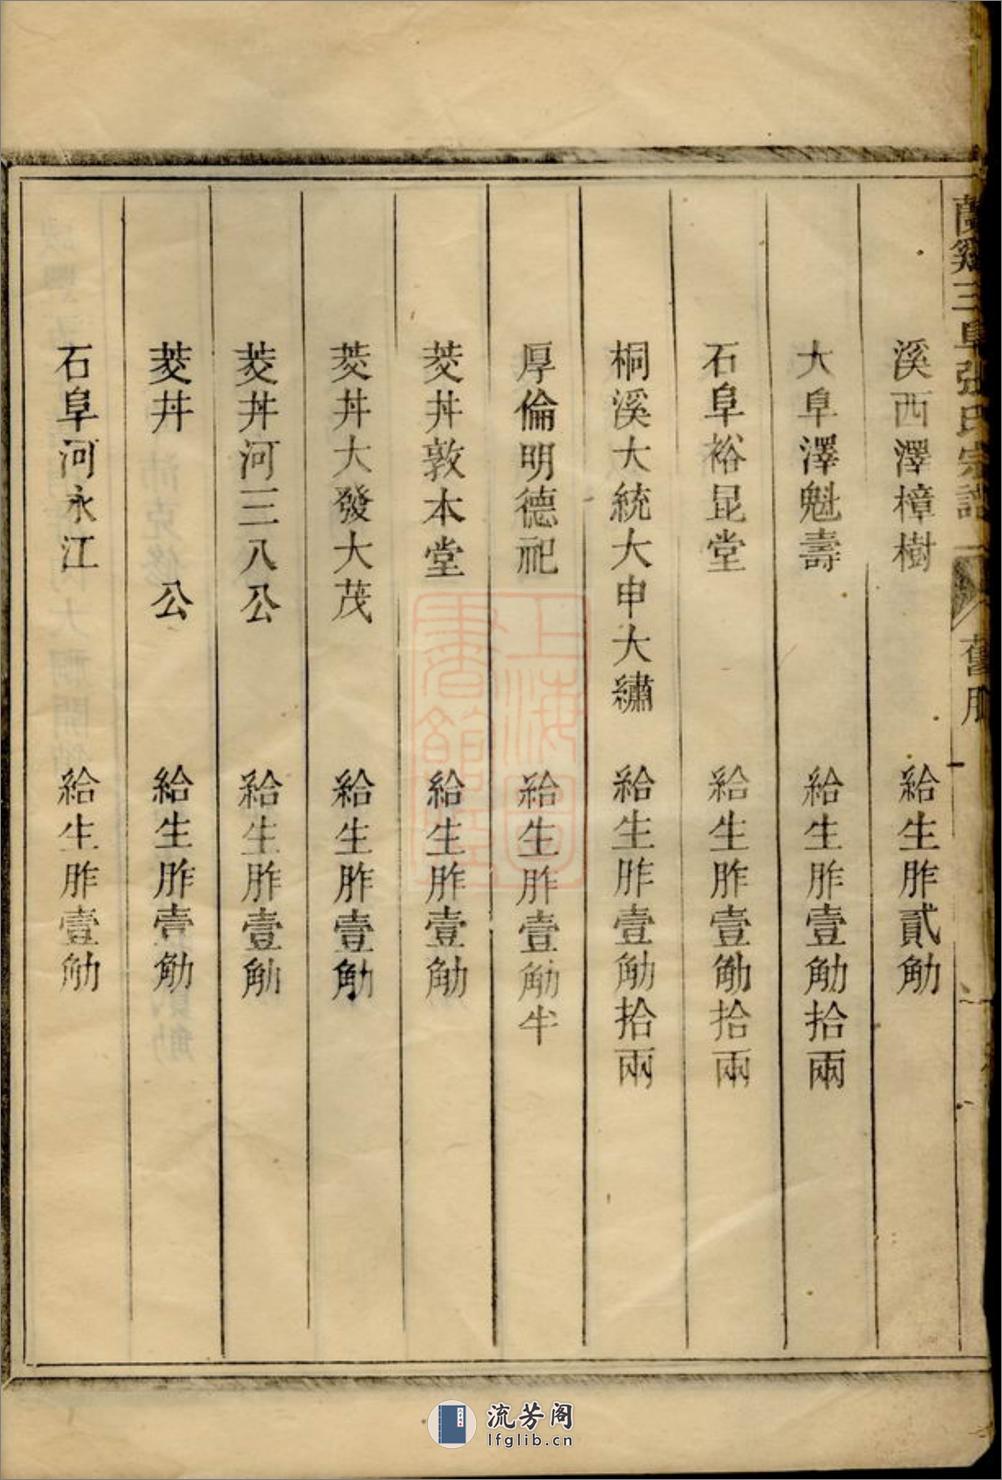 蘭谿三阜張氏宗譜
舊胙
溪西澤樟樹 給生胙貳觔
大阜澤魁壽 給生胙壹觔拾兩
石阜裕昆堂 給生胙壹觔拾兩
桐溪大統大申大繡 給生胙壹觔拾兩
厚倫明德祀 給生胙壹觔半
茭丼敦本堂 給生胙壹觔
茭丼大發大茂 給生胙壹觔
茭丼河三八公 給生胙壹觔
茭丼 公 給生胙壹觔
石阜河永江 給生胙壹觔
上海圖書館藏
流芳阁
lfglib.cn